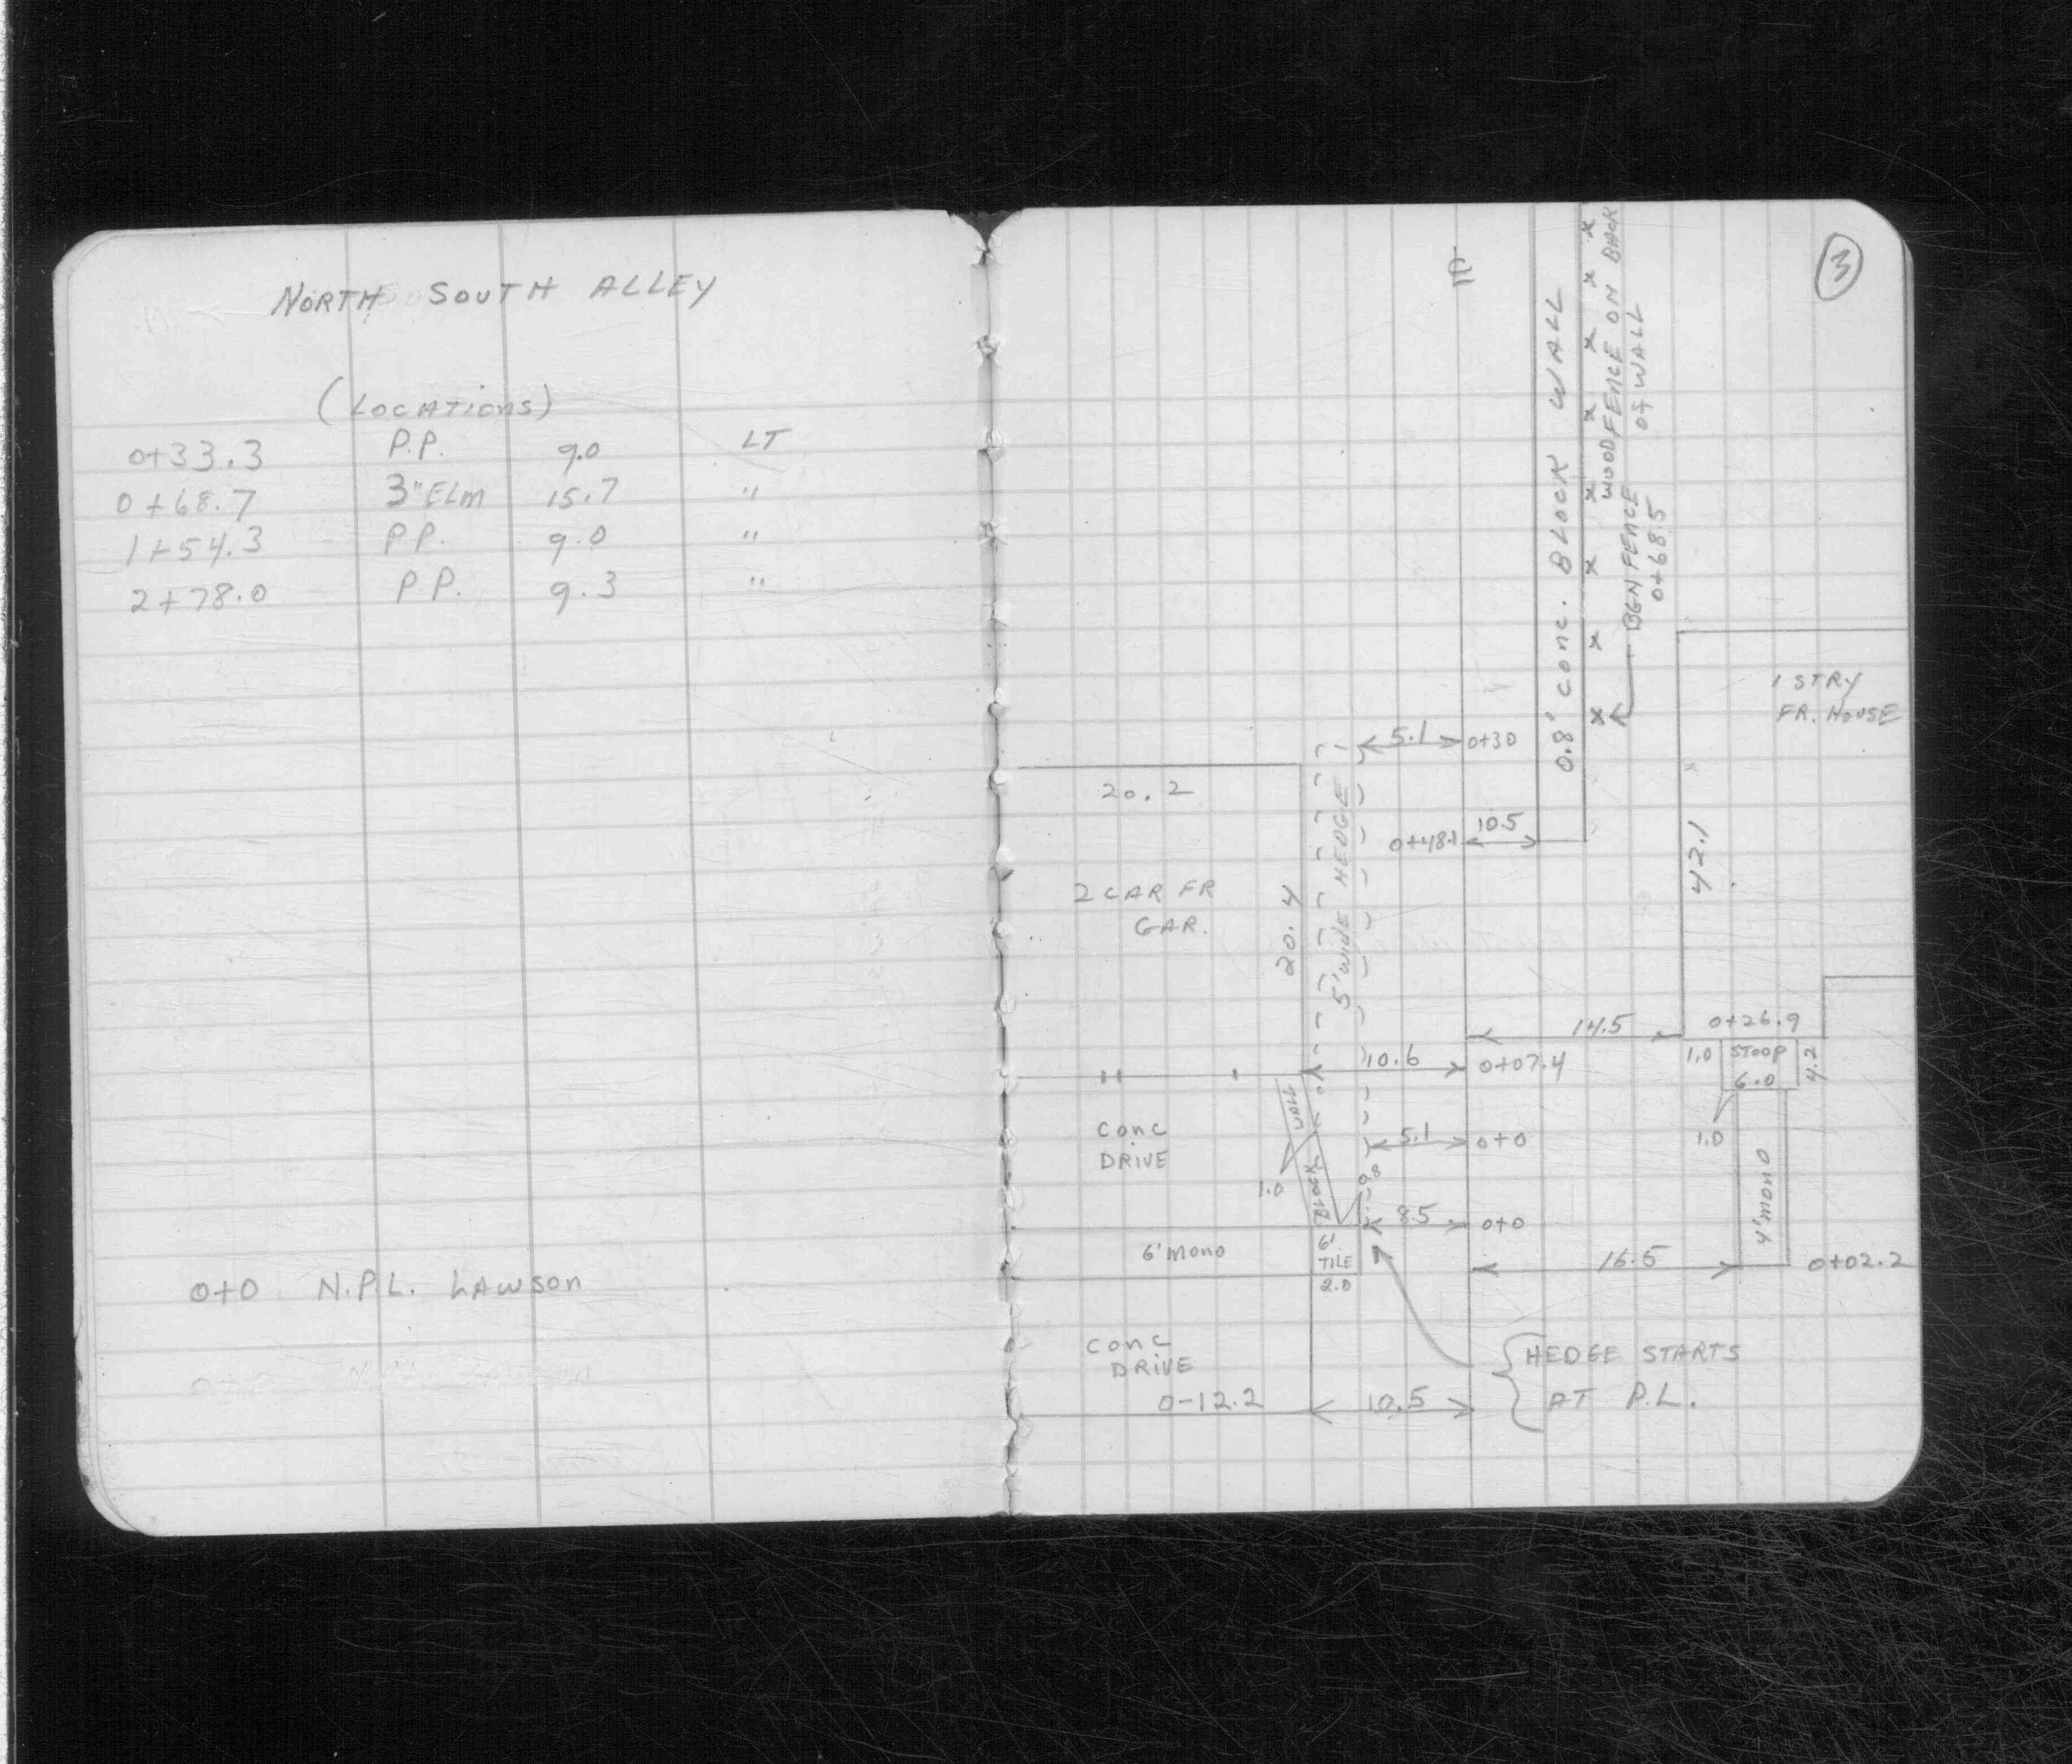 NORTH SOUTH ALLEY
(LOCATIONS)
0+33.3 P.P. 9.0 LT
0+68.7 3"ELM 15.7 "
1+54.3 P.P. 9.0 "
2+78.0 P.P. 9.3 "
0+0 N.P.L. LAWSON
3
0.8' CONC. BLOCK WALL
WOOD FENCE ON BACK
OF WALL
BGN FENCE
0+68.5
1 STRY
FR. HOUSE
5.1 0+30
20.2
0+48.1 10.5
42.1
2 CAR FR
GAR.
20.4
5' WIDE HEDGE
14.5 0+26.9
10.6 0+07.4
1.0 STOOP 4.2
6.0
WALL
CONC
DRIVE
5.1 0+0
1.0
1.0
BLOCK
0.8
4' MONO
8.5 0+0
6' MONO
6'
TILE
2.0
16.5 0+02.2
CONC
DRIVE
HEDGE STARTS
AT P.L.
0-12.2 10.5